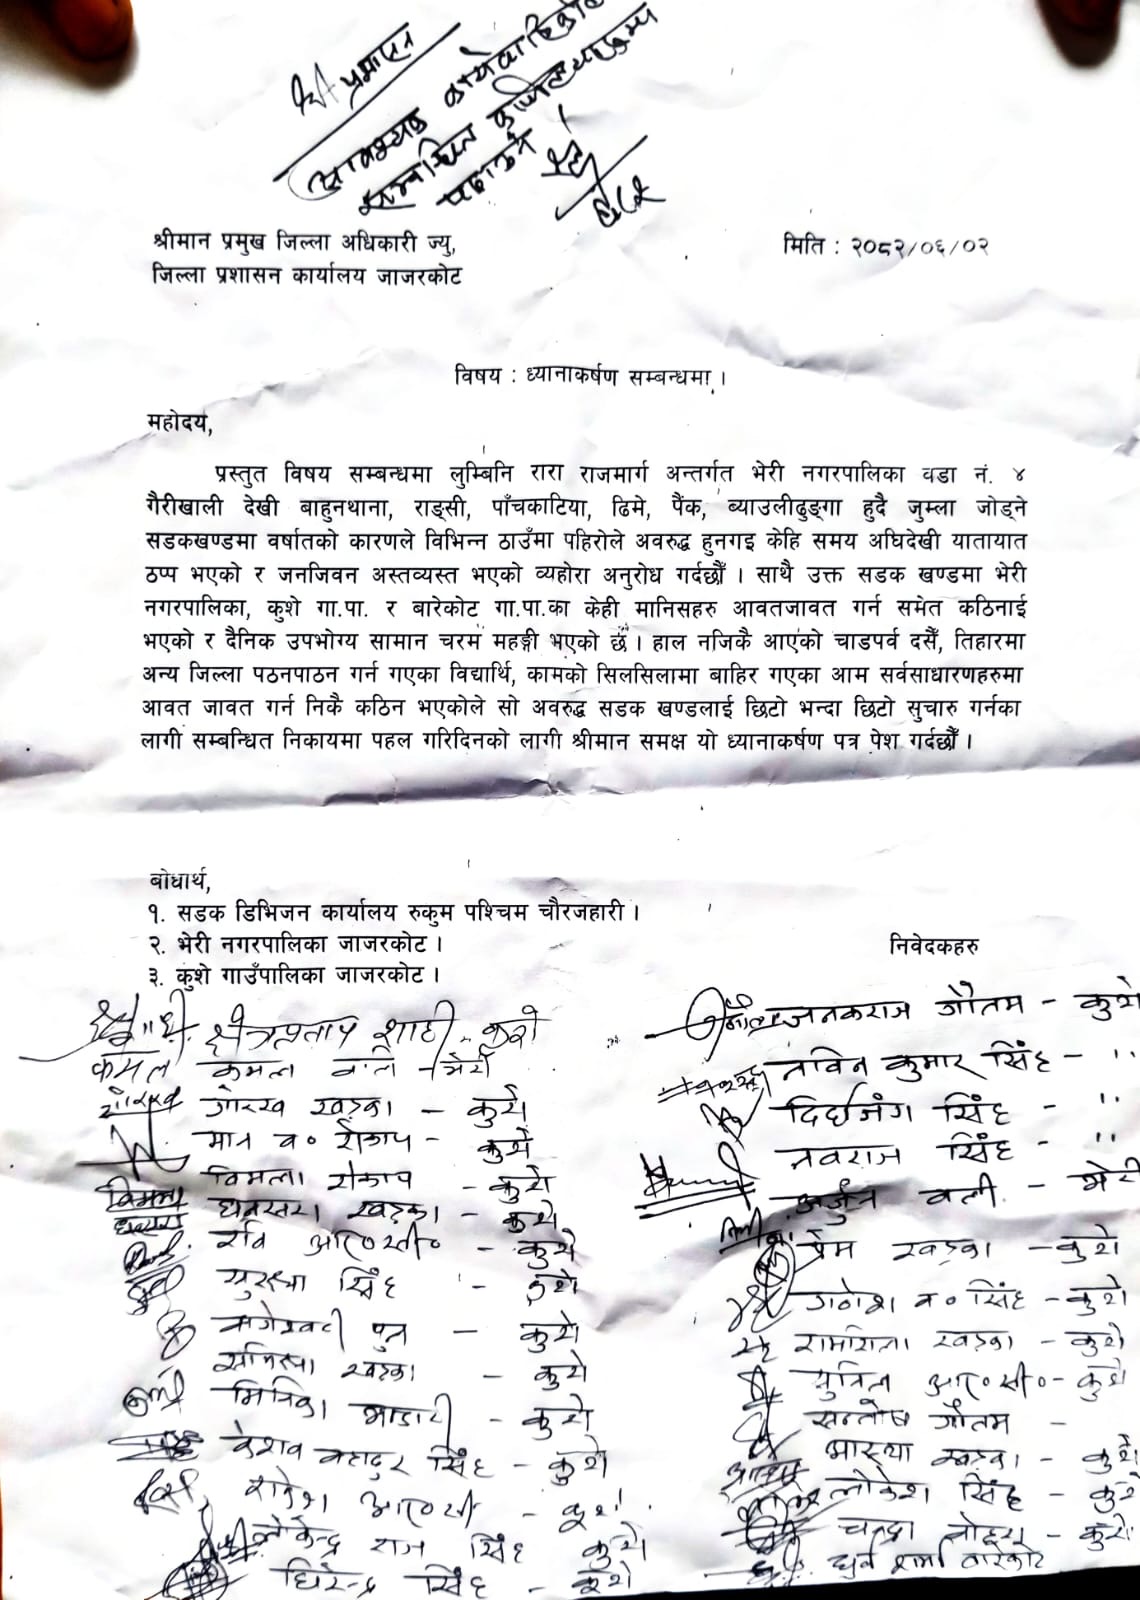 श्री प्रशासन
आवश्यक कार्यवाहीको
सम्बन्धित कार्यालयहरुमा
पठाउने ।
श्रीमान प्रमुख जिल्ला अधिकारी ज्यु,
मिति : २०८२/०६/०२
जिल्ला प्रशासन कार्यालय जाजरकोट
विषय : ध्यानाकर्षण सम्बन्धमा ।
महोदय,
प्रस्तुत विषय सम्बन्धमा लुम्बिनि रारा राजमार्ग अन्तर्गत भेरी नगरपालिका वडा नं. ४
गैरीखाली देखी बाहुनथाना, राङ्सी, पाँचकाटिया, ढिमे, पैंक, ब्याउलीढुङ्गा हुदै जुम्ला जोड्ने
सडकखण्डमा वर्षातको कारणले विभिन्न ठाउँमा पहिरोले अवरुद्ध हुनगइ केहि समय अघिदेखी यातायात
ठप्प भएको र जनजिवन अस्तव्यस्त भएको व्यहोरा अनुरोध गर्दछौँ । साथै उक्त सडक खण्डमा भेरी
नगरपालिका, कुशे गा.पा. र बारेकोट गा.पा.का केही मानिसहरु आवतजावत गर्न समेत कठिनाई
भएको र दैनिक उपभोग्य सामान चरम महङ्गी भएको छ । हाल नजिकै आएको चाडपर्व दसैँ, तिहारमा
अन्य जिल्ला पठनपाठन गर्न गएका विद्यार्थि, कामको सिलसिलामा बाहिर गएका आम सर्वसाधारणहरुमा
आवत जावत गर्न निकै कठिन भएकोले सो अवरुद्ध सडक खण्डलाई छिटो भन्दा छिटो सुचारु गर्नका
लागी सम्बन्धित निकायमा पहल गरिदिनको लागी श्रीमान समक्ष यो ध्यानाकर्षण पत्र पेश गर्दछौँ ।
बोधार्थ,
१. सडक डिभिजन कार्यालय रुकुम पश्चिम चौरजहारी ।
२. भेरी नगरपालिका जाजरकोट ।
३. कुशे गाउँपालिका जाजरकोट ।
निवेदकहरु
क्षेत्रप्रताप शाही - कुशे
कमल कमला वलि - भेरी
गोरख खड्का - कुशे
मान ब० रोकाय - कुशे
विमला रोकाय - कुशे
धनसरा खड्का - कुशे
रवि आर०सी० - कुशे
सुरक्षा सिंह - कुशे
बागेश्वरी पुन - कुशे
खड्का - कुशे
भण्डारी - कुशे
केशव बहादुर सिंह - कुशे
राकेश आर०सी - कुशे
लोकेन्द्र राज सिंह कुशे
धिरेन्द्र सिंह - कुशे
जनकराज गौतम - कुशे
नविन कुमार सिंह - "
दिर्घजंग सिंह - "
नवराज सिंह - "
अर्जुन वली - भेरी
प्रेम खड्का - कुशे
गणेश ब० सिंह - कुशे
रामशिला खड्का - कुशे
सुनिल आर०सी० - कुशे
सन्तोष गौतम -
आस्था खड्का - कुशे
लोकेश सिंह - कुशे
चन्द्रा बोहरा - कुशे
ध्रुव शर्मा बारेकोट